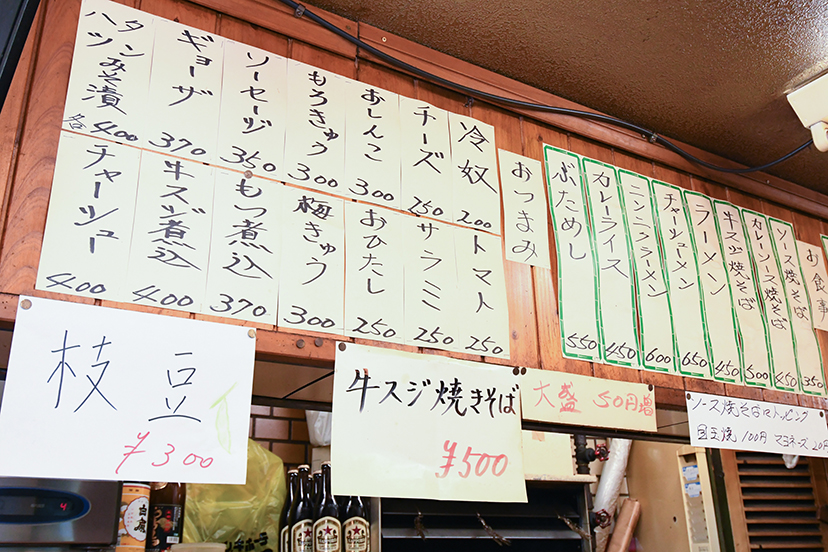 お食事
ソース焼そば 350
カレーソース焼そば 450
牛スジ焼そば 500
ラーメン 450
チャーシューメン 650
ニンニクラーメン 600
カレーライス 450
ぶためし 550
おつまみ
冷奴 200
チーズ 250
おしんこ 300
もろきゅう 300
ソーセージ 350
ギョーザ 370
タン
ハツ
みそ漬
各400
トマト 250
サラミ 250
おひたし 250
梅きゅう 300
もつ煮込 370
牛スジ煮込 400
チャーシュー 400
枝豆
¥300
牛スジ焼きそば
¥500
大盛 50円増
ソース焼そばトッピング
目玉焼 100円 マヨネーズ 20円